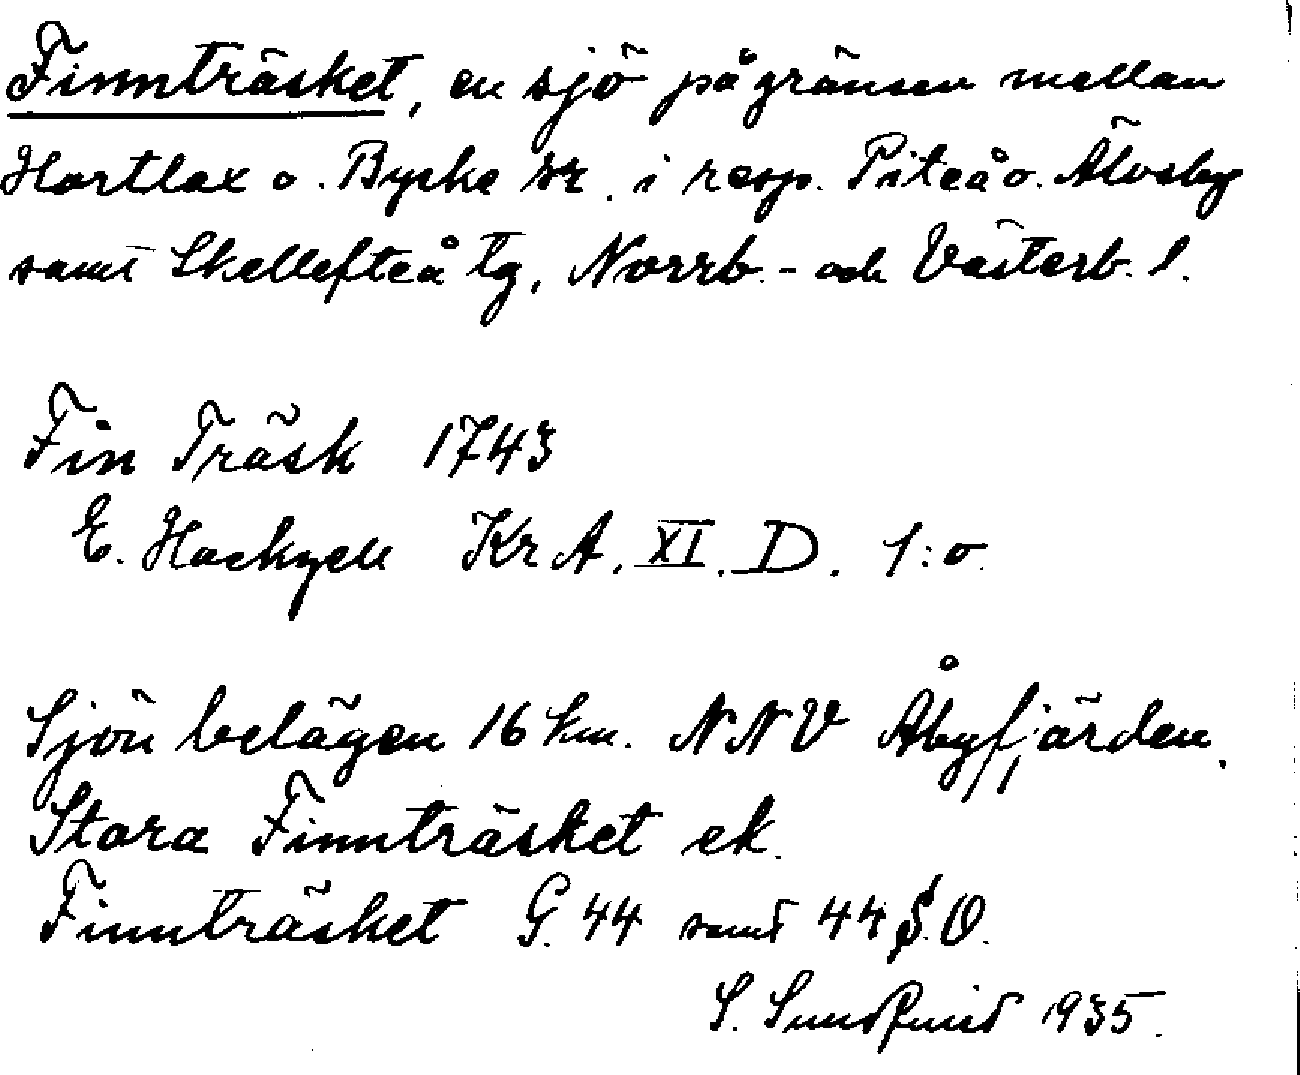 Finnträsket, en sjö på gränsen mellan
Hortlax o. Byske sr. i resp. Piteå o. Älvsby
samt Skellefteå tg, Norrb.- och Västerb. l.
Fin Träsk 1743
E. Hackzell KrA. XI. D. 1:o.
Sjön belägen 16 km. NNV Åbyfjärden.
Stora Finnträsket ek.
Finnträsket G. 44 samt 44 S.O.
S. Sundqvist 1935.